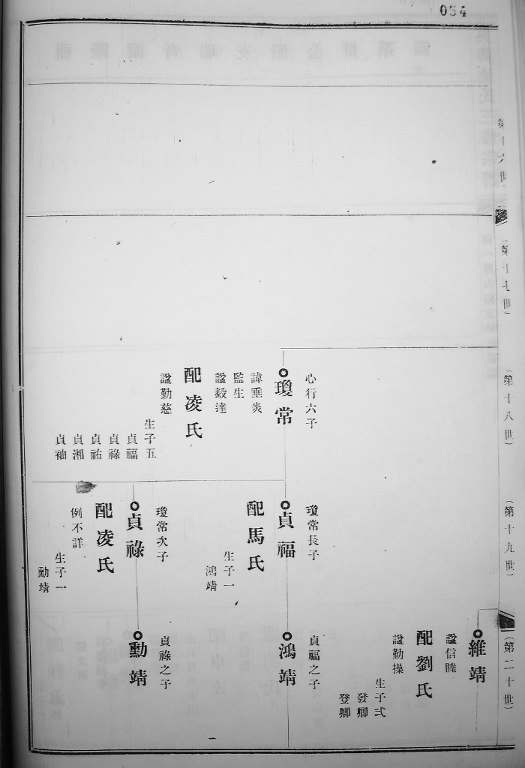 054
第十六世
第十七世
(第十八世)
(第十九世)
(第二十世)
心行六子
瓊常
諱垂炎
監生
諡毅達
配凌氏
諡勤慈
生子五
貞福
貞祿
貞祐
貞湘
貞袖
瓊常長子
貞福
配馬氏
生子一
鴻靖
瓊常次子
貞祿
配凌氏
例不詳
生子一
勳靖
維靖
諡信睦
配劉氏
諡勤操
生子弍
發卿
登卿
貞福之子
鴻靖
貞祿之子
勳靖